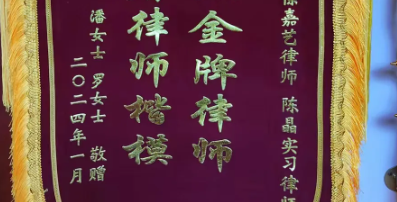 陈嘉艺律师 陈晶实习律师
金牌律师
律师楷模
潘女士 罗女士 敬赠
二〇二四年一月